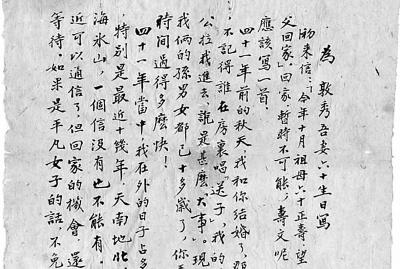 為敦秀吾妻六十生日寫
初來信：今年十月祖母六十正壽望
父回家。回家，暫時不可能，壽文呢
應該寫一首。
四十一年前的秋天我和你結婚了，那
不記得誰在房裏唱“送子”我的
公拉我進去，說是甚麼“大事”。現
我倆的孫男女都已十多歲了，你
時間過得多麼快！
四十一年當中，我在外的日子占多
特別是最近十幾年，天南地北
海氷山，一個信沒有也不能有。
近可以通信了，但回家的機會，還
等待。如果是平凡女子的話，不免